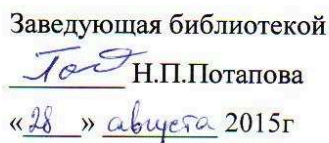 Заведующая библиотекой
Н.П.Потапова
«28» августа 2015г